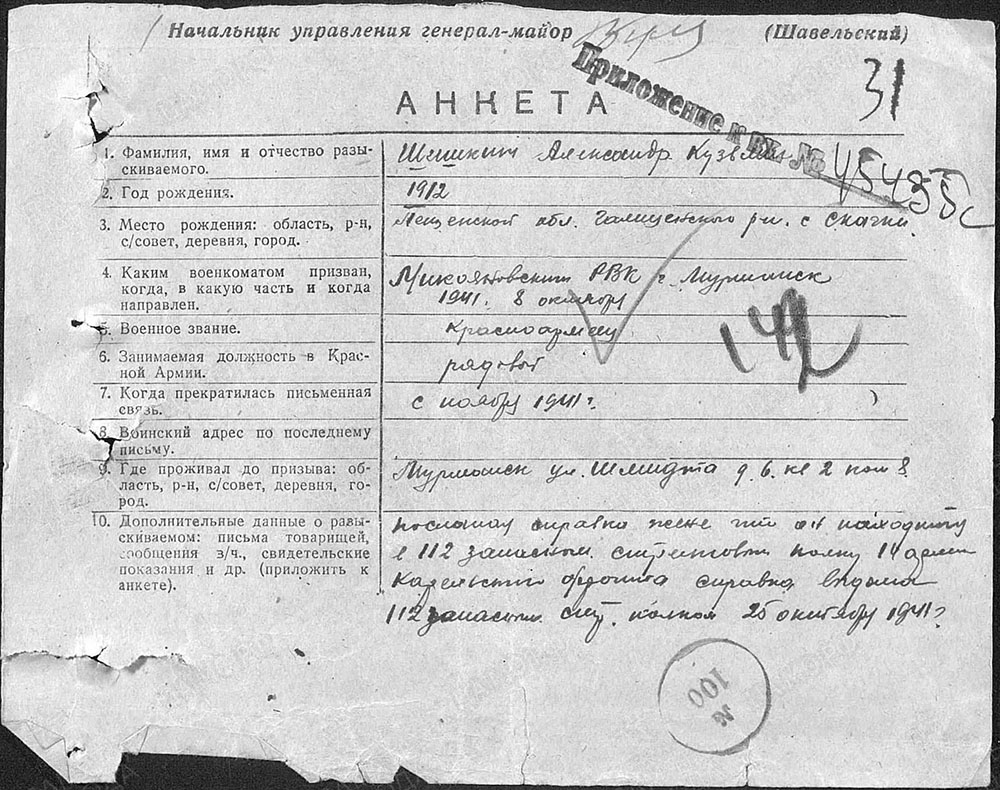 Начальник управления генерал-майор (Шавельский)
Приложение к вх. №
45485с
31
АНКЕТА
1. Фамилия, имя и отчество разы-
скиваемого.
Александр Кузьмич
2. Год рождения.
1912
3. Место рождения: область, р-н,
с/совет, деревня, город.
обл. р-н. с Скачки
4. Каким военкоматом призван,
когда, в какую часть и когда
направлен.
Микояновским РВК г. Мурманск
1941. 8 октября
5. Военное звание.
Красноармеец
142
6. Занимаемая должность в Крас-
ной Армии.
рядовой
7. Когда прекратилась письменная
связь.
с ноября 1941 г.
8. Воинский адрес по последнему
письму.
9. Где проживал до призыва: об-
ласть, р-н, с/совет, деревня, го-
род.
Мурманск ул. Шмидта д. 6. кв 2 ком 8
10. Дополнительные данные о разы-
скиваемом: письма товарищей,
сообщения з/ч., свидетельские
показания и др. (приложить к
анкете).
справка жене что он находится
в 112 запасном стрелковом полку 14 армии
Карельского фронта справка выдана
112 запасным стр. полком 25 октября 1941 г
N
100